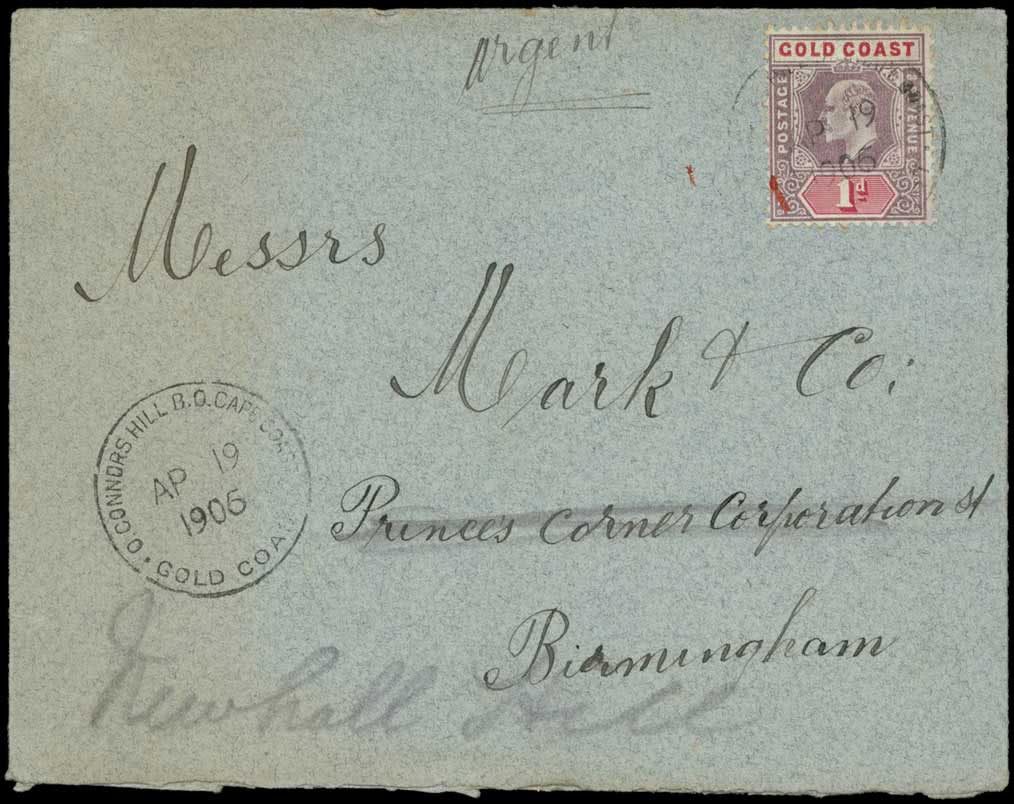 urgent
GOLD COAST
POSTAGE
REVENUE
1d
AP 19
1906
Messrs
Mark & Co:
O'CONNORS HILL B.O. CAPE COAST
AP 19
1906
GOLD COAST
Princes Corner Corporation St
Birmingham
Newhall Hill